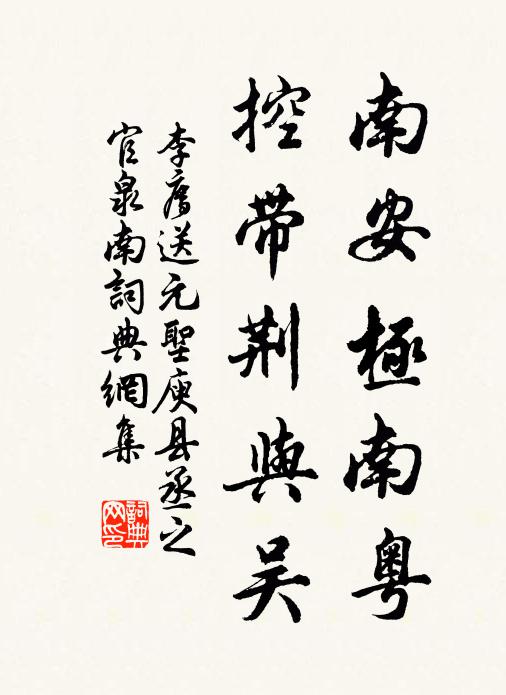 南安極南粵
控帶荆與吴
李廌送元聖庾县丞之
官泉南詞典網集
詞典网印